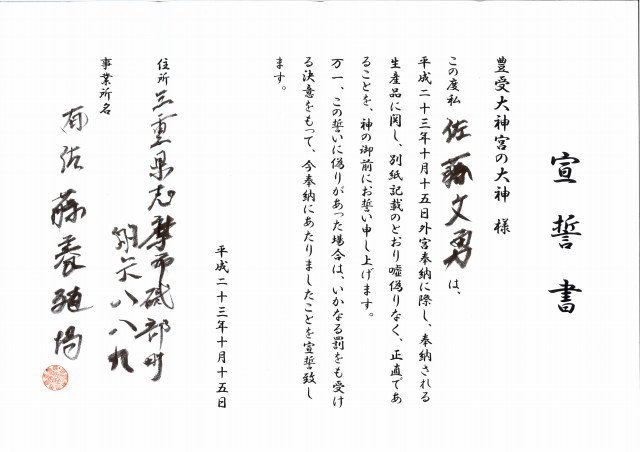 宣誓書
豊受大神宮の大神 様
この度私 佐藤文勇 は、
平成二十三年十月十五日外宮奉納に際し、奉納される
生産品に関し、別紙記載のとおり嘘偽りなく、正直であ
ることを、神の御前にお誓い申し上げます。
万一、この誓いに偽りがあった場合は、いかなる罰をも受け
る決意をもって、今奉納にあたりましたことを宣誓致し
ます。
平成二十三年十月十五日
住所 三重県志摩市磯部町
八八九
事業所名
㈲佐藤養殖場